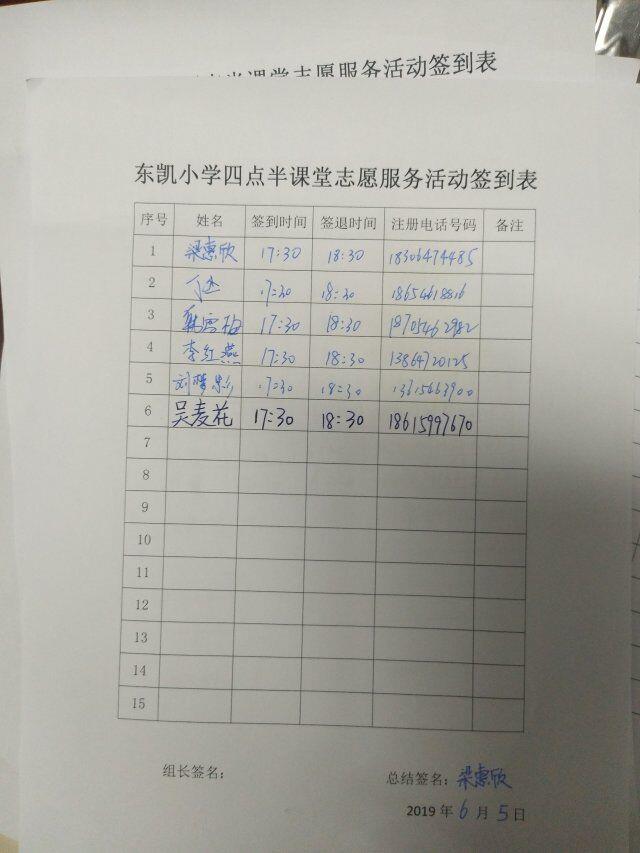 志愿服务活动签到表
东凯小学四点半课堂志愿服务活动签到表
序号 姓名 签到时间 签退时间 注册电话号码 备注
1 梁惠欣 17:30 18:30 18306474485
2 17:30 18:30 18654618816
3 韩雪梅 17:30 18:30 18705462982
4 李红燕 17:30 18:30 13864720125
5 17:30 18:30
6 吴麦花 17:30 18:30 18615997670
7
8
9
10
11
12
13
14
15
组长签名: 总结签名: 梁惠欣
2019年6月5日